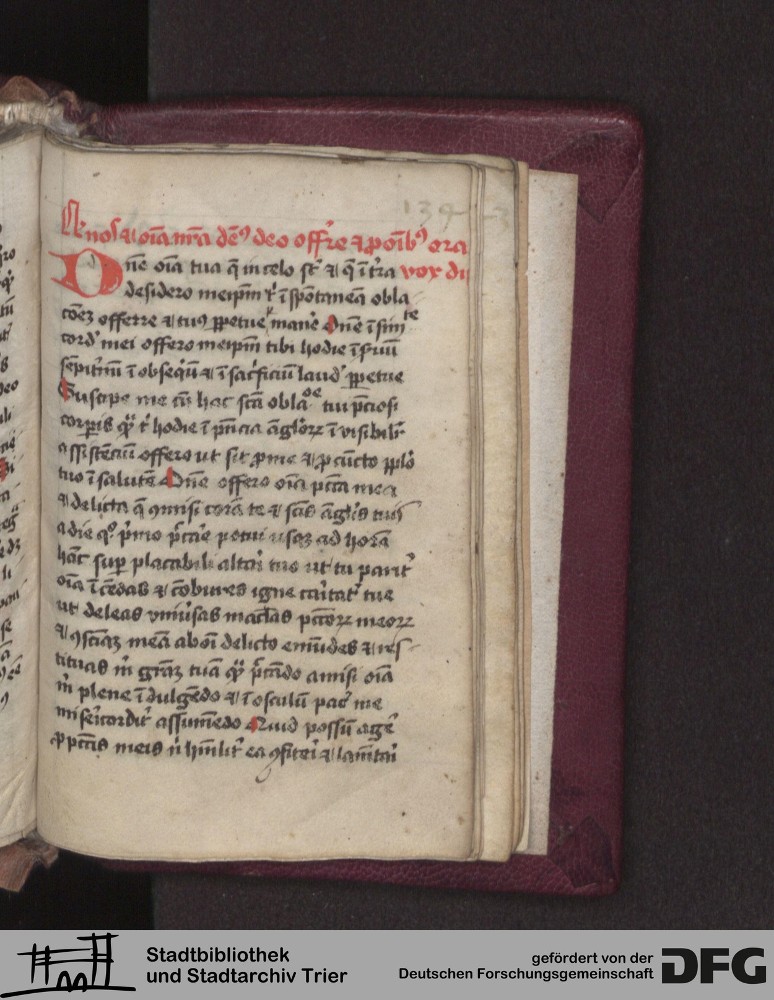 134
nos et oīa nr̄a deb9 deo offr̄e et p oīb9 ora
Dn̄e oīa tua q̄ in celo st̄ et q̄ ī t̄ra vox di
desidero meip̄m t' ī spōtaneā obla
cōez offerre et tu9 ppetue manē Dn̄e ī sim te
cord' mei offero meip̄m tibi hodie ī s'uū
sēpit'nū ī obseq'ū et ī sac'ficiū laud' ppetue
Suscipe me cū hac scā obla oe tui p̄ciosi
corpis q̄ t' hodie ī p̄ncia āglorz ī visibilr'
assistēciū offero ut sit p me et p cūcto pplo
tuo ī salutē Dn̄e offero oīa pctā mea
et delicta q̄ 9misi corā te et scīs āglis tuis
a die q° p'mo p̄ccāe potui usqz ad horā
hāc sup placabili altari tuo ut tu parit'
oīa īcēdas et cōbures igne caritat' tue
ut deleas univ'sas maclas pctōrz meorz
et 9sciāz meā ab oī delicto emūdes et res-
tituas m' grāz tuā q̄ p̄ccādo amisi oīa
m' plene īdulgēdo et ī osculū pac' me
mis'icordit' assumēdo Quid possū age'
p pctīs meis n' hūilit' ea 9fitēi et lamētāi
Stadtbibliothek
und Stadtarchiv Trier
gefördert von der
Deutschen Forschungsgemeinschaft
DFG